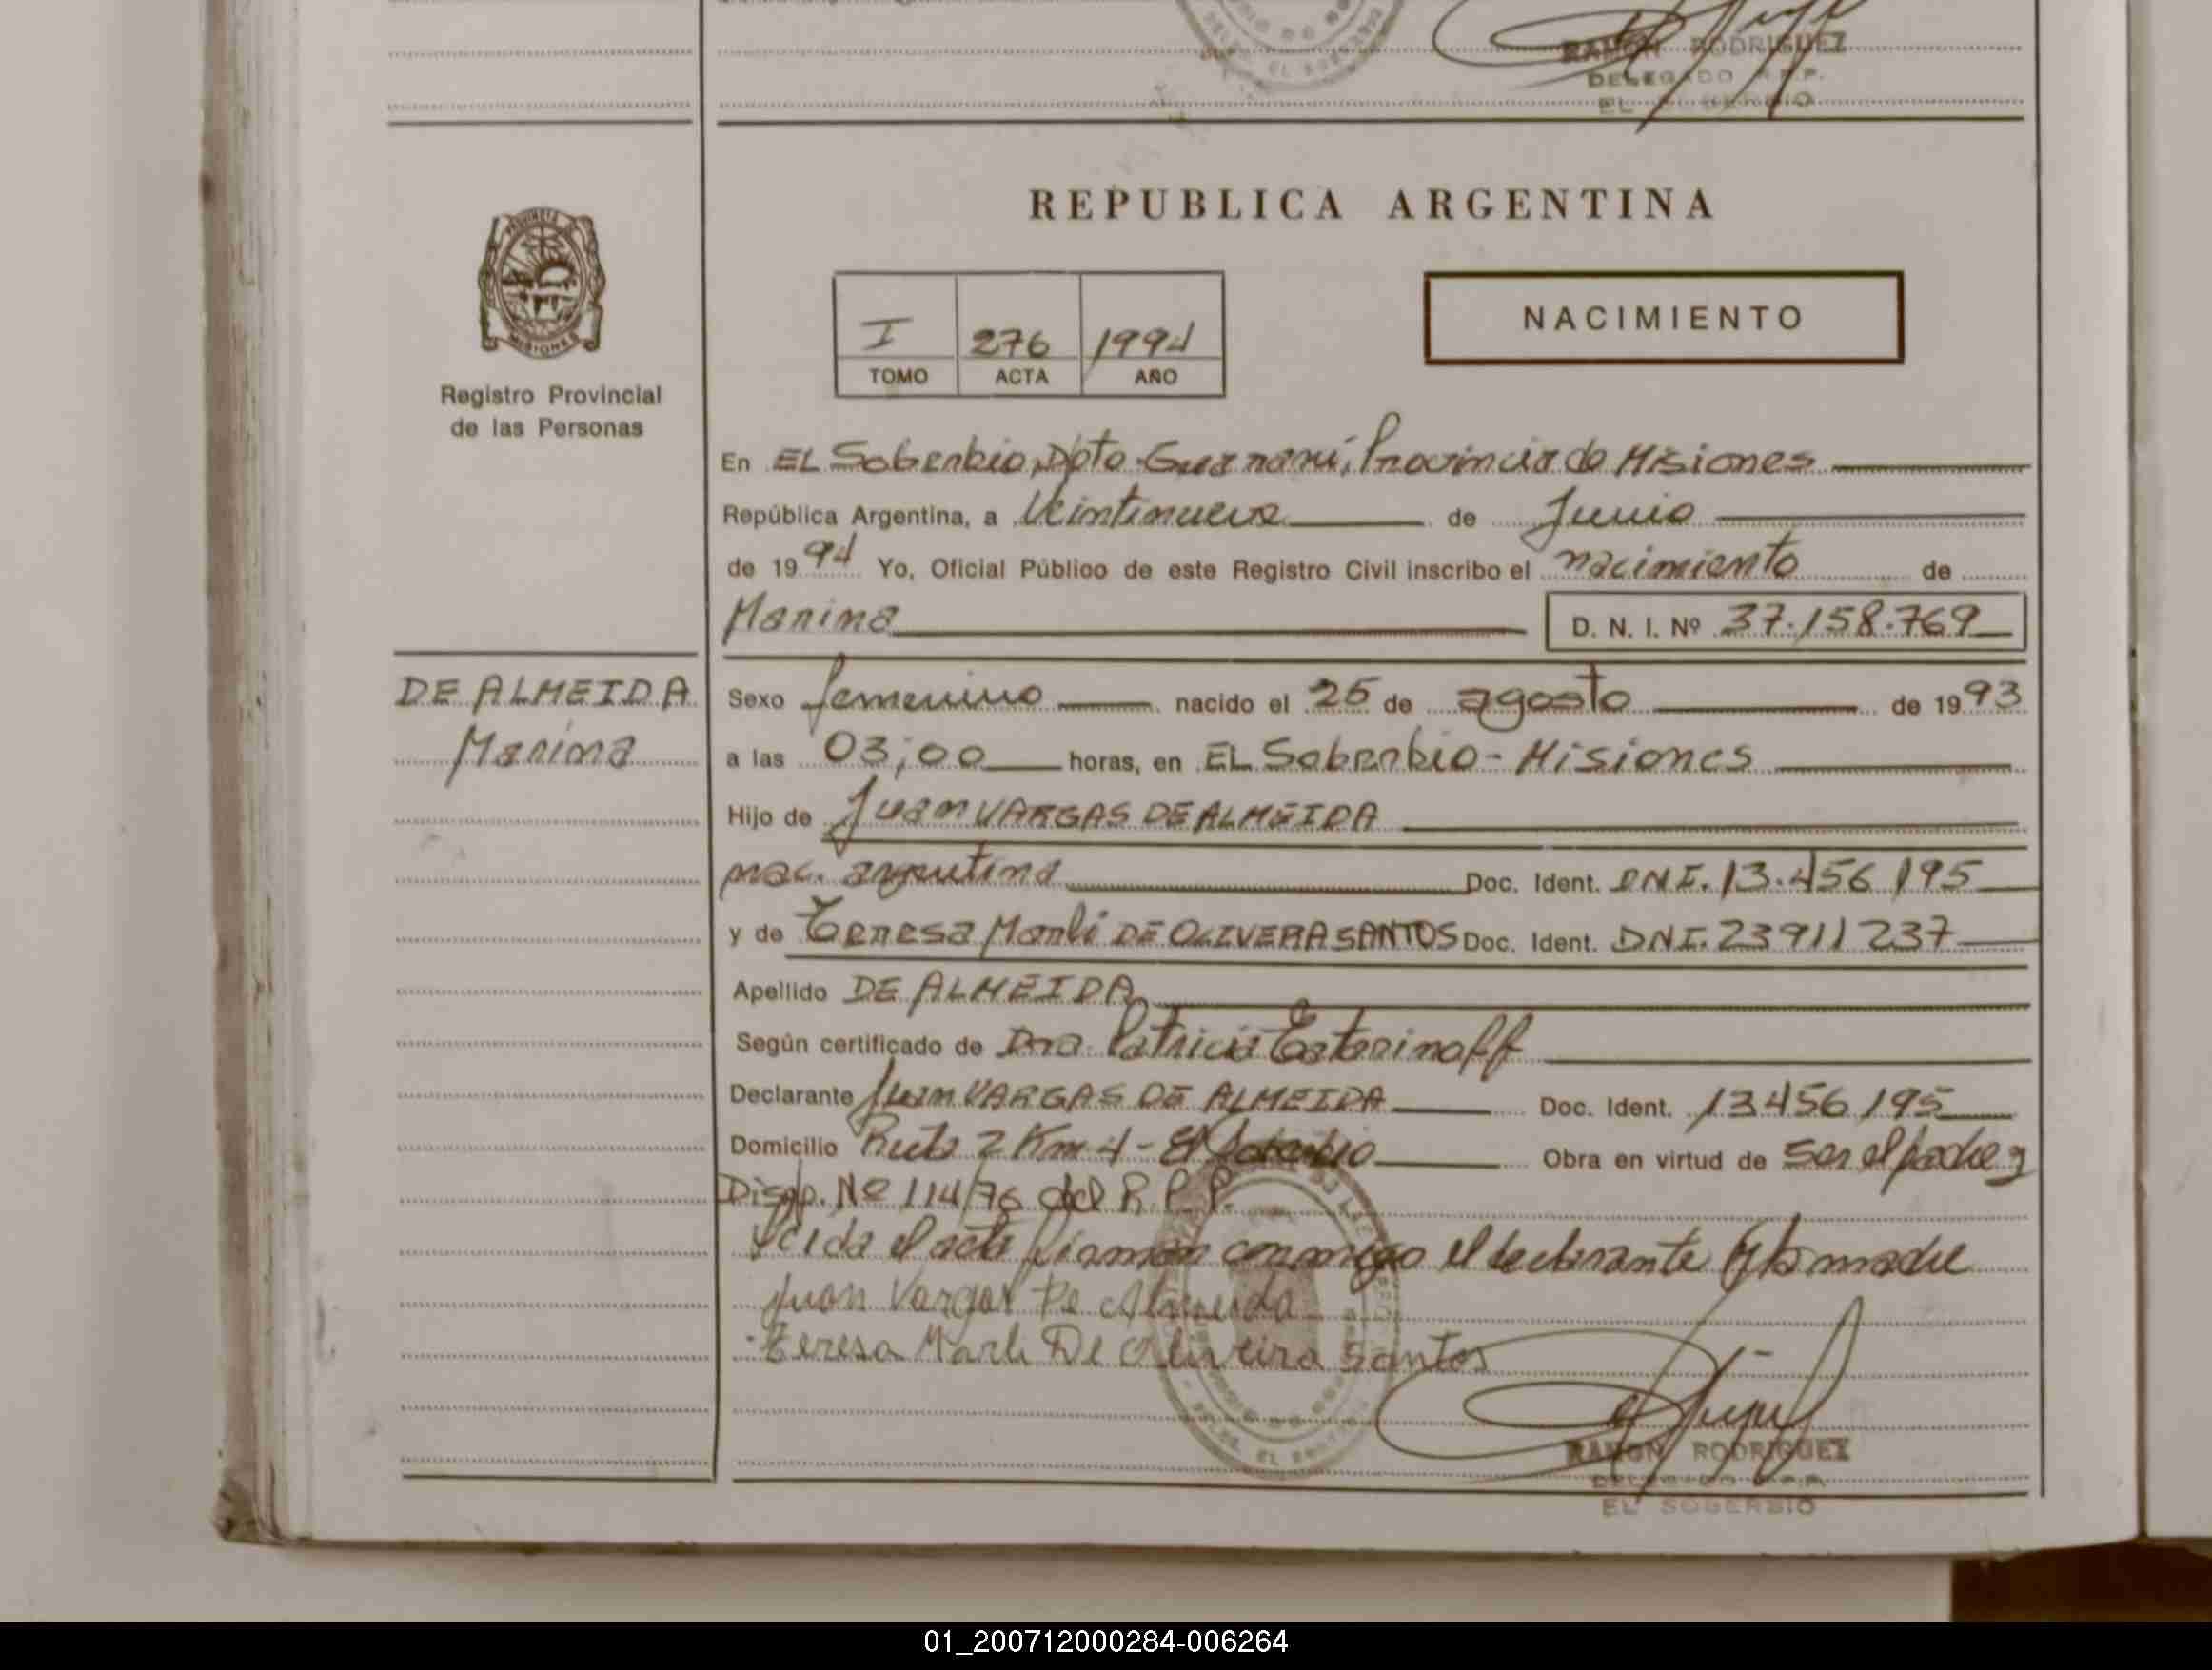 RAMON RODRIGUEZ
DELEGADO R.P.P.
EL SOBERBIO
REPUBLICA ARGENTINA
PROVINCIA DE
MISIONES
Registro Provincial
de las Personas
I 276 1994
TOMO ACTA AÑO
NACIMIENTO
En EL Soberbio, Dpto-Guaraní, Provincia de Misiones
República Argentina, a Veintinueve de Junio
de 1994 Yo, Oficial Público de este Registro Civil inscribo el nacimiento de
Marina D. N. I. Nº 37.158.769
DE ALMEIDA
Marina
Sexo femenino nacido el 25 de agosto de 1993
a las 03;00 horas, en EL Soberbio - Misiones
Hijo de Juan VARGAS DE ALMEIDA
nac. argentina Doc. Ident. DNI. 13.456 195
y de Teresa Marli DE OLIVERA SANTOS Doc. Ident. DNI. 23911237
Apellido DE ALMEIDA
Según certificado de Dra. Patricia
Declarante Juan VARGAS DE ALMEIDA Doc. Ident. 13456195
Domicilio Ruta 2 Km 4 - El Soberbio Obra en virtud de ser el padre y
Disp. Nº 114/76 del R.P.P.
Leida el acta firman conmigo el declarante y la madre
Juan Vargas De Almeida
Teresa Marli De Oliveira Santos
RAMON RODRIGUEZ
DELEGADO R.P.P.
EL SOBERBIO
01_200712000284-006264